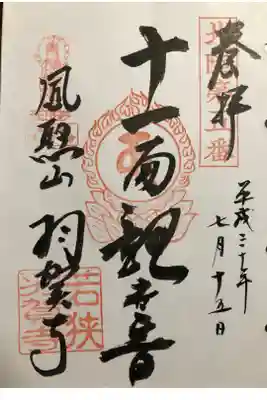 奉拝
平成三十年
七月十五日
十一面観音
鳳聚山
羽賀寺
若狭
羽賀寺